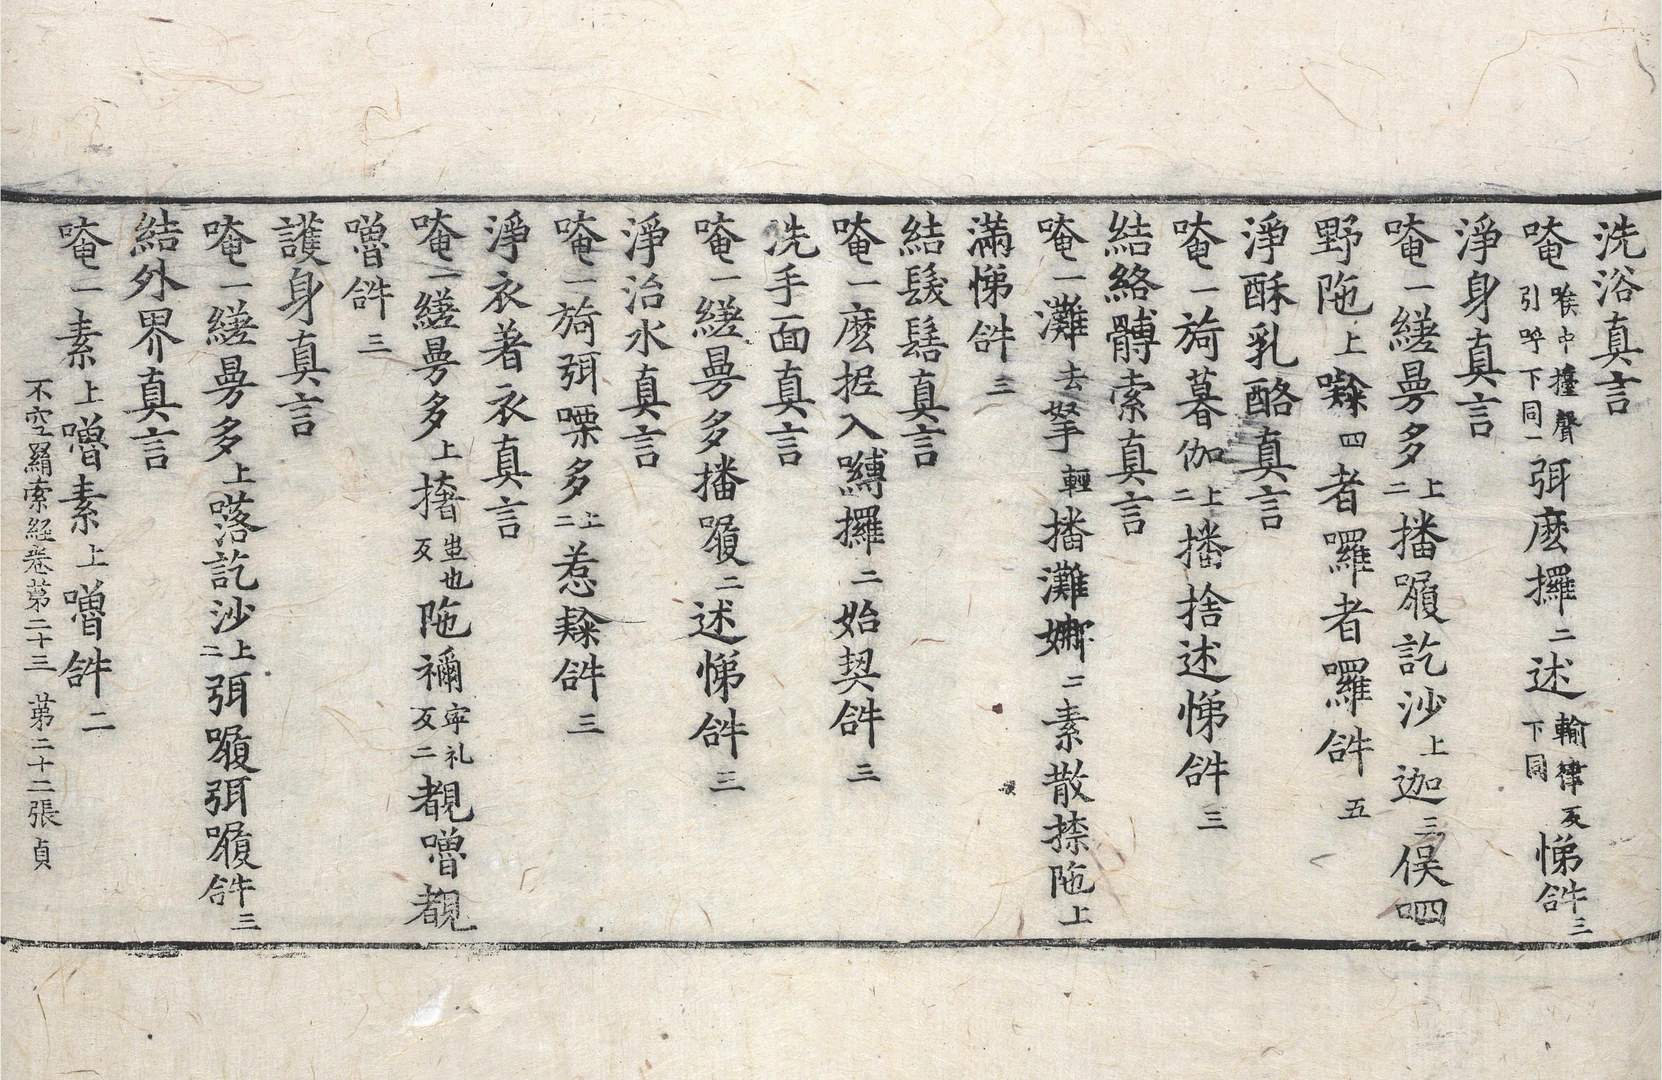 洗浴真言
唵喉中擡聲引呼下同一弭麽攞二述輸律反下同悌𤙖三
淨身真言
唵一縒曼多上二播履訖沙上迦三俁呬
野陁上㘑四者囉者囉𤙖五
淨酥乳酪真言
唵一旖暮伽上二播捨述悌𤙖三
結絡髆索真言
唵一灘去拏輕播灘二素散捺陁上
滿悌𤙖三
結髮髻真言
唵一麽抳入嚩攞二始契𤙖三
洗手面真言
唵一縒曼多播履二述悌𤙖三
淨治水真言
唵一旖弭㗚多上二惹𤙖三
淨衣著衣真言
唵一縒曼多上㨋也反陁禰寧礼反二覩嚕覩
嚕𤙖三
護身真言
唵一縒曼多上落訖沙上二弭履弭履𤙖三
結外界真言
唵一素上嚕素上嚕𤙖二
不空羂索経卷第二十三 第二十二張貞